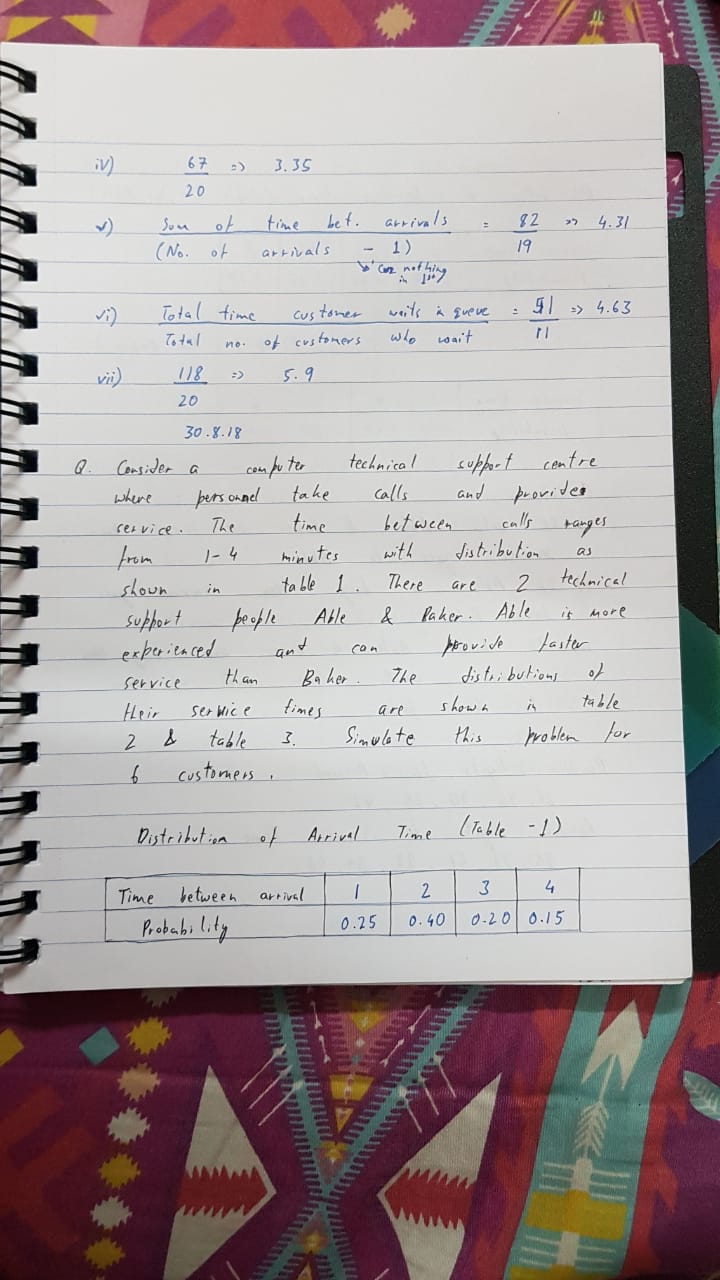 iv) 67 => 3.35
20
v) Sum of time bet. arrivals = 82 => 4.31
(No. of arrivals - 1) 19
↳ nothing
in 1st
vi) Total time customer waits in queue = 51 => 4.63
Total no. of customers who wait 11
vii) 118 => 5.9
20
30.8.18
Q. Consider a computer technical support centre
where personnel take calls and provides
service. The time between calls ranges
from 1-4 minutes with distribution as
shown in table 1. There are 2 technical
support people Able & Baker. Able is more
experienced and can provide faster
service than Baker. The distributions of
their service times are shown in table
2 & table 3. Simulate this problem for
6 customers.
Distribution of Arrival Time (Table -1)
Time between arrival 1 2 3 4
Probability 0.25 0.40 0.20 0.15